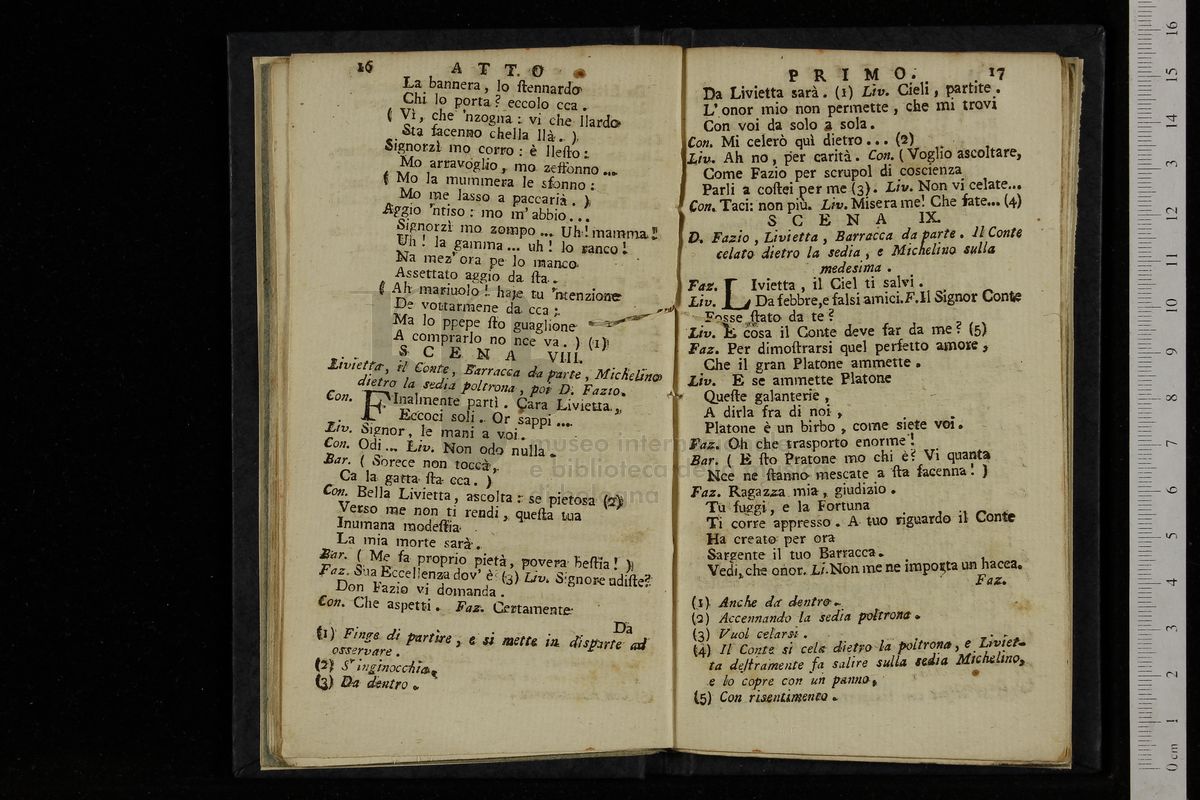 16 ATTO
La bannera, lo ſtennardo
Chi lo porta? eccolo cca.
( Vì, che 'nzogna: vi che llardo
Sta facenno chella llà. )
Signorzì mo corro: è lleſto:
Mo arravoglio, mo zeffonno...
( Mo la mummera le sfonno:
Mo me lasso a paccaria. )
Aggio 'ntiso: mo m'abbio...
Signorzì mo zompo... Uh! mamma!
Uh! la gamma... uh! lo ranco!
Na mez' ora pe lo manco
Assettato aggio da ſta.
( Ah mariuolo! haje tu 'ntenzione
De votarmene da cca;
Ma lo ppepe ſto guaglione
A comprarlo no nce va. ) (1)
SCENA VIII.
Livietta, il Conte, Barracca da parte, Michelino
dietro la sedia poltrona, poi D. Fazio.
Con. FInalmente partì. Cara Livietta,
Eccoci soli. Or sappi...
Liv. Signor, le mani a voi.
Con. Odi... Liv. Non odo nulla.
Bar. ( Sorece non toccà,
Ca la gatta ſta cca. )
Con. Bella Livietta, ascolta: se pietosa (2)
Verso me non ti rendi, queſta tua
Inumana modeſtia
La mia morte sarà.
Bar. ( Me fa proprio pietà, povera beſtia! )
Faz. Sua Eccellenza dov' è? (3) Liv. Signore udiſte?
Don Fazio vi domanda.
Con. Che aspetti. Faz. Certamente
Da
(1) Finge di partire, e si mette in disparte ad
osservare.
(2) S'inginocchia.
(3) Da dentro.
PRIMO. 17
Da Livietta sarà. (1) Liv. Cieli, partite.
L'onor mio non permette, che mi trovi
Con voi da solo a sola.
Con. Mi celerò quì dietro... (2)
Liv. Ah no, per carità. Con. ( Voglio ascoltare,
Come Fazio per scrupol di coscienza
Parli a coſtei per me (3). Liv. Non vi celate...
Con. Taci: non più. Liv. Misera me! Che fate... (4)
SCENA IX.
D. Fazio, Livietta, Barracca da parte. Il Conte
celato dietro la sedia, e Michelino sulla
medesima.
Faz. LIvietta, il Ciel ti salvi.
Liv. Da febbre, e falsi amici. F. Il Signor Conte
Fosse ſtato da te?
Liv. E cosa il Conte deve far da me? (5)
Faz. Per dimoſtrarsi quel perfetto amore,
Che il gran Platone ammette.
Liv. E se ammette Platone
Queſte galanterie,
A dirla fra di noi,
Platone è un birbo, come siete voi.
Faz. Oh che trasporto enorme!
Bar. ( E ſto Pratone mo chi è? Vi quanta
Nce ne ſtanno mescate a ſta facenna! )
Faz. Ragazza mia, giudizio.
Tu fuggi, e la Fortuna
Ti corre appresso. A tuo riguardo il Conte
Ha creato per ora
Sargente il tuo Barracca.
Vedi, che onor. Li. Non me ne importa un hacca.
Faz.
(1) Anche da dentro.
(2) Accennando la sedia poltrona.
(3) Vuol celarsi.
(4) Il Conte si cela dietro la poltrona, e Liviet-
ta deſtramente fa salire sulla sedia Michelino,
e lo copre con un panno.
(5) Con risentimento.